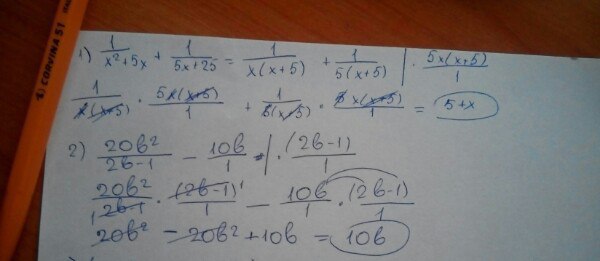 CORVINA 51
1) 1/(x²+5x) + 1/(5x+25) = 1/(x(x+5)) + 1/(5(x+5)) | · 5x(x+5)/1
1/(x(x+5)) · 5x(x+5)/1 + 1/(5(x+5)) · 5x(x+5)/1 = 5+x
2) 20b²/(2b-1) - 10b/1 | · (2b-1)/1
20b²/(2b-1) · (2b-1)/1 - 10b/1 · (2b-1)/1
20b² - 20b² + 10b = 10b